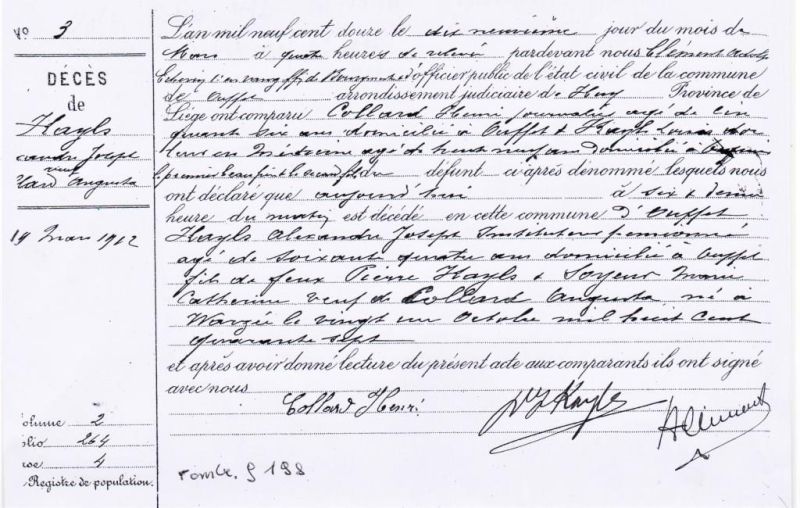 No 3
DÉCÈS
de
Hayls
xandre Joseph
veuf
llard Augusta
19 Mars 1912
olume 2
olio 264
ase 4
Registre de population.
L'an mil neuf cent douze le dix neuvième jour du mois de
Mars à quatre heures de relevé pardevant nous Clément
d'officier public de l'état civil de la commune
de Ouffet arrondissement judiciaire de Huy Province de
Liège ont comparu Collard Henri journalier agé de cin
quante six ans domicilié à Ouffet & Hayls Louis doc
teur en Médecine agé de trente neuf ans domicilié à
le premier beau frère le second fils du défunt ci après dénommé lesquels nous
ont déclaré que aujourd'hui à six & demie
heure du matin est décédé en cette commune d'Ouffet
Hayls Alexandre Joseph Instituteur pensionné
agé de soixante quatre ans domicilié à Ouffet
fils de feux Pierre Hayls & Soyeur Marie
Catherine veuf de Collard Augusta né à
Warzée le vingt un Octobre mil huit cent
quarante sept
et après avoir donné lecture du présent acte aux comparants ils ont signé
avec nous
Collard Henri Hayls AClément
tombe 9 198